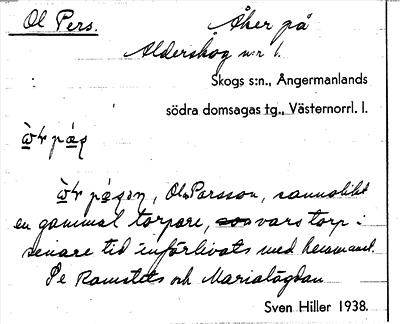 Ol Pers.
Åker på
Alderskog n:r 1.
Skogs s:n., Ångermanlands
södra domsagas tg., Västernorrl. l.
Ol Parsson, sannolikt
en gammal torpare, vars torp i
senare tid införlivats med hemmanet.
Se Ramstets och Marialägdan
Sven Hiller 1938.